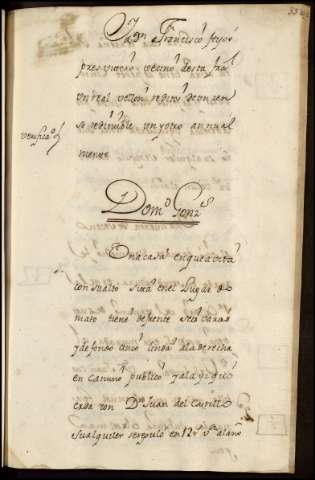 Y a Dn Francisco feijoo
presvitero vecino desta fra
un real vellon reditos de un zen
so redimible y no otro annual
mente
verificado
Domo Gonzs
Una casa en que avita
con su alto sita en el Lugar de
mato tiene de frente seis varas
y de fondo cinco linda a la derecha
en camino publico y a la
con Dn Juan del Castillo
su alquiler se regulo en 12 rs al año